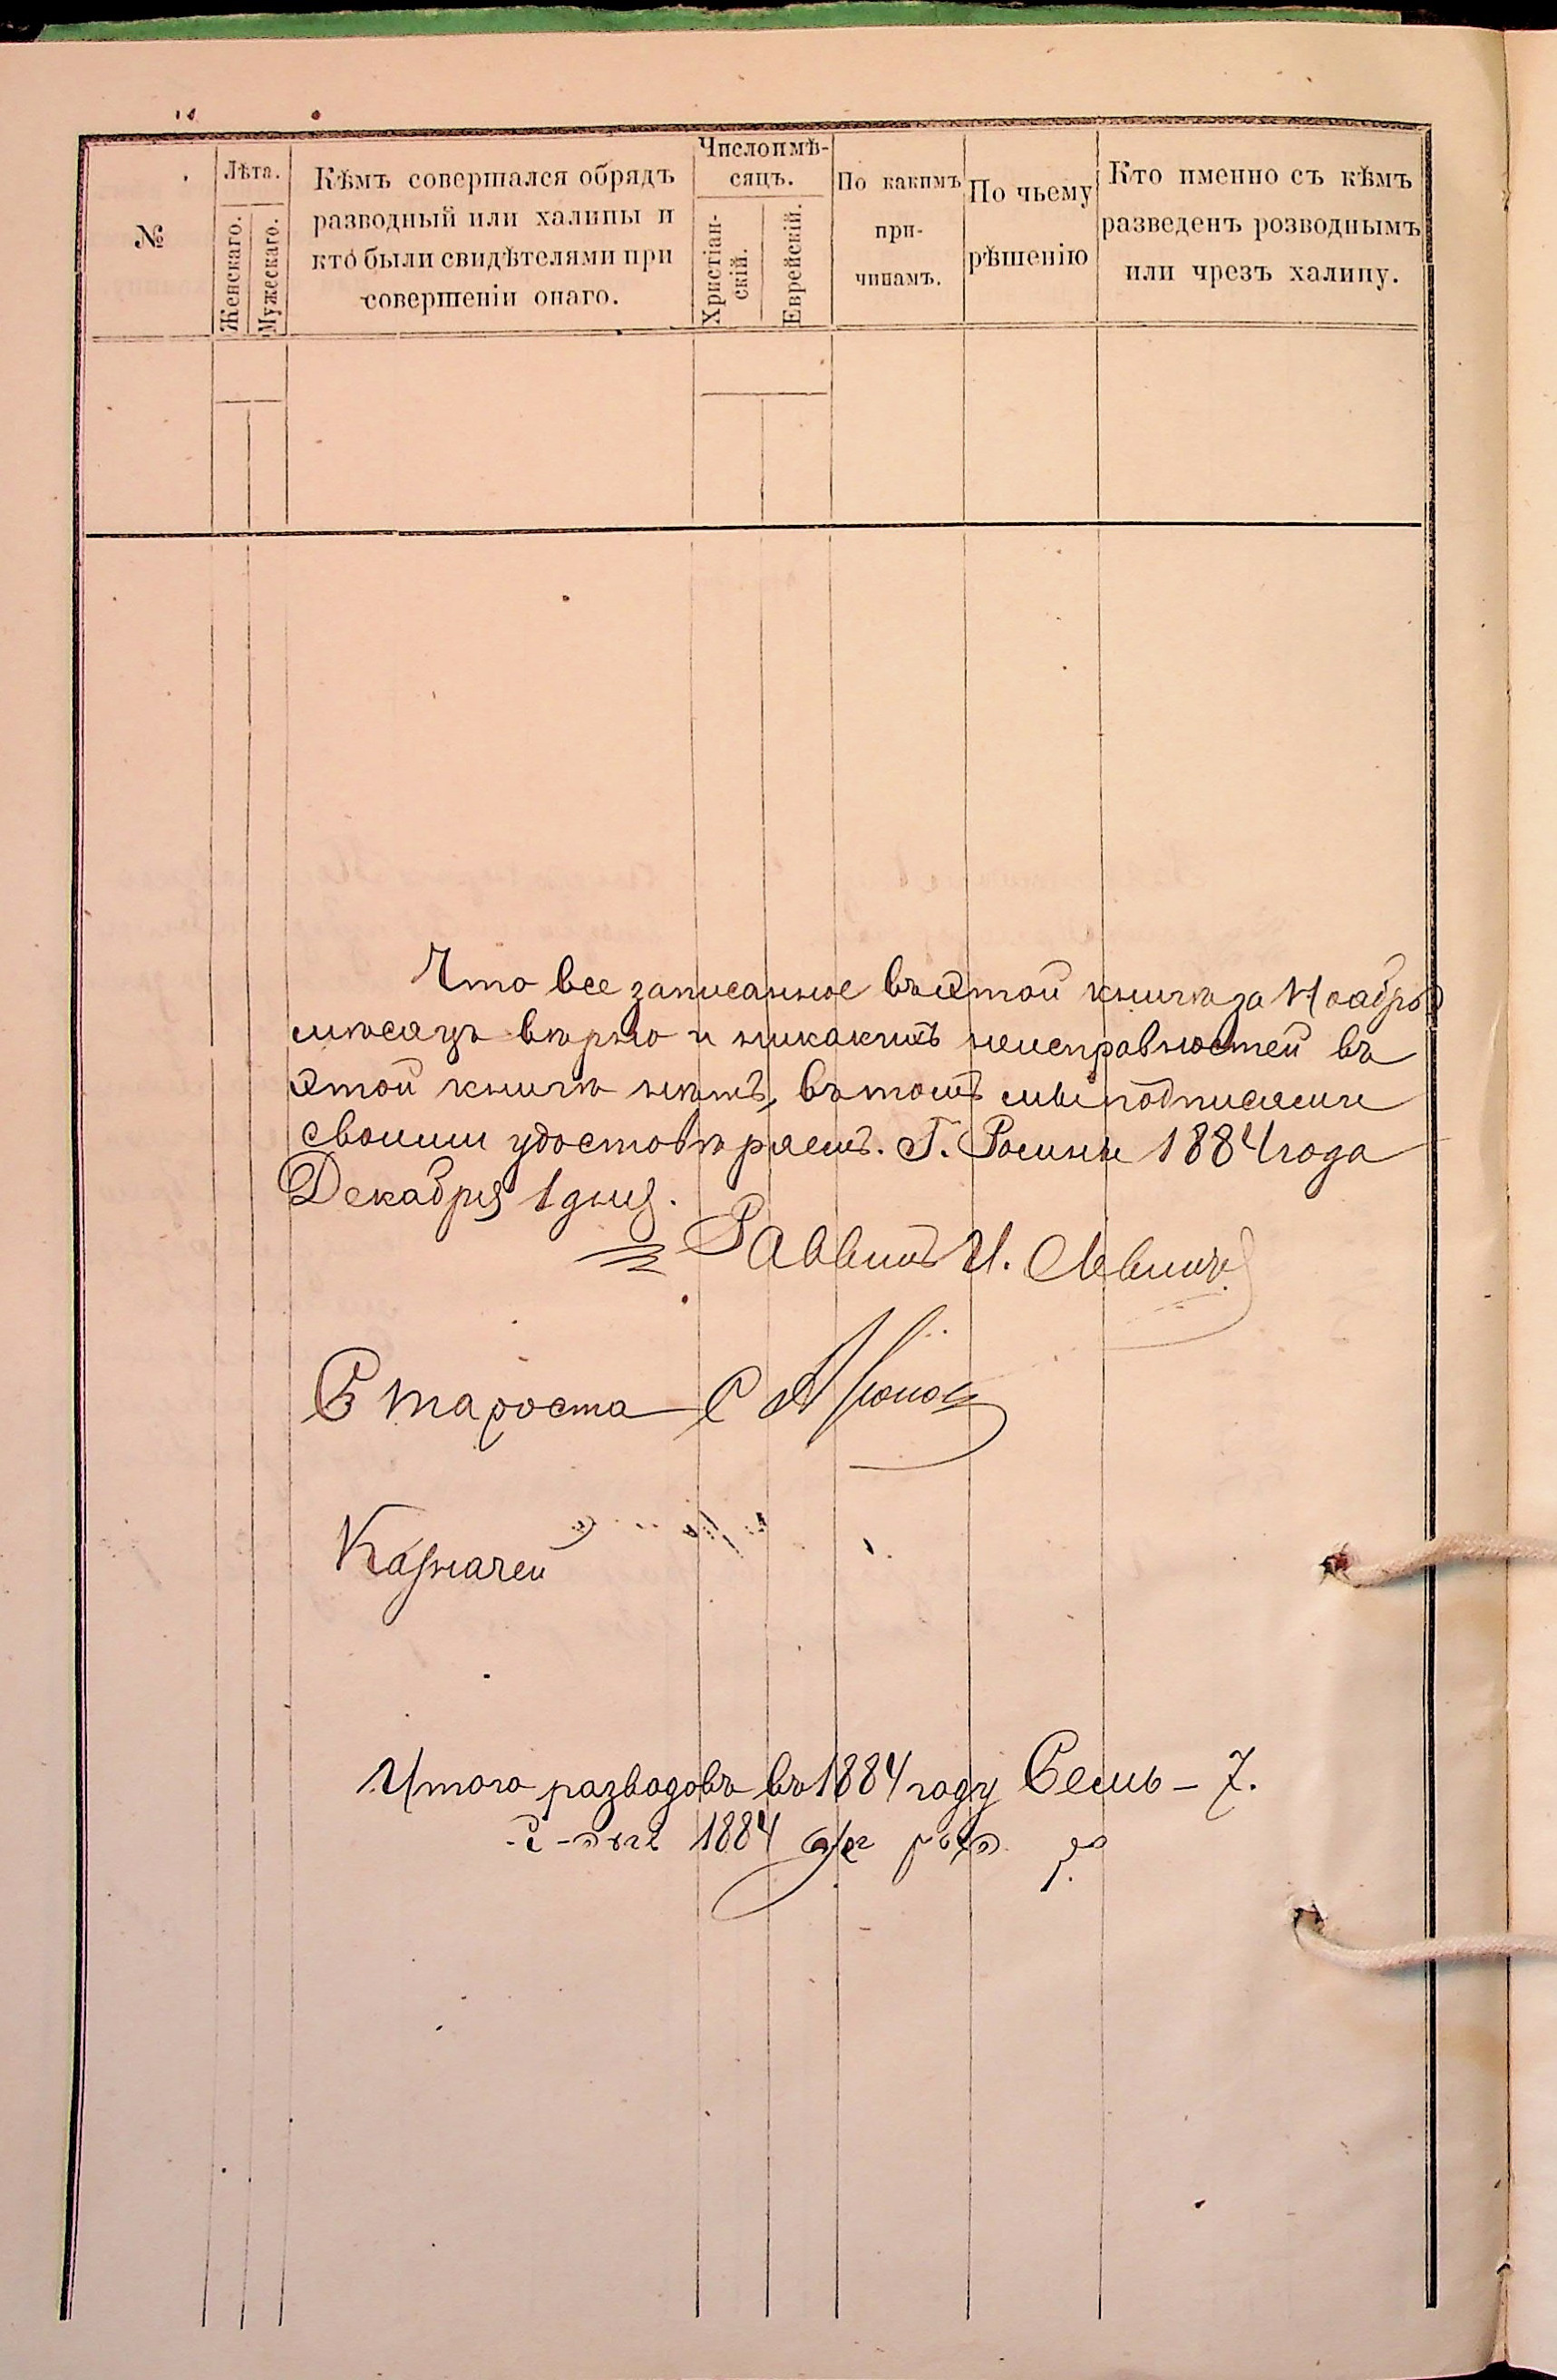 №
Лѣта.
Женскаго.
Мужескаго.
Кѣмъ совершался обрядъ
разводный или халицы и
кто были свидѣтелями при
совершеніи онаго.
Число и мѣ-
сяцъ.
Христіан-
скій.
Еврейскій.
По какимъ
при-
чинамъ.
По чьему
рѣшенію
Кто именно съ кѣмъ
разведенъ розводнымъ
или чрезъ халицу.
Что все записанное въ этой книгѣ за Ноябрь
мѣсяцъ вѣрно и никакихъ неисправностей въ
этой книгѣ нѣтъ, въ томъ мы подписями
своими удостовѣряемъ. Г. Ромны 1884 года
Декабря 1 дня.
Раввинъ И. Левинъ
Староста С
Казначей
Итого разводовъ въ 1884 году Семь - 7.
1884